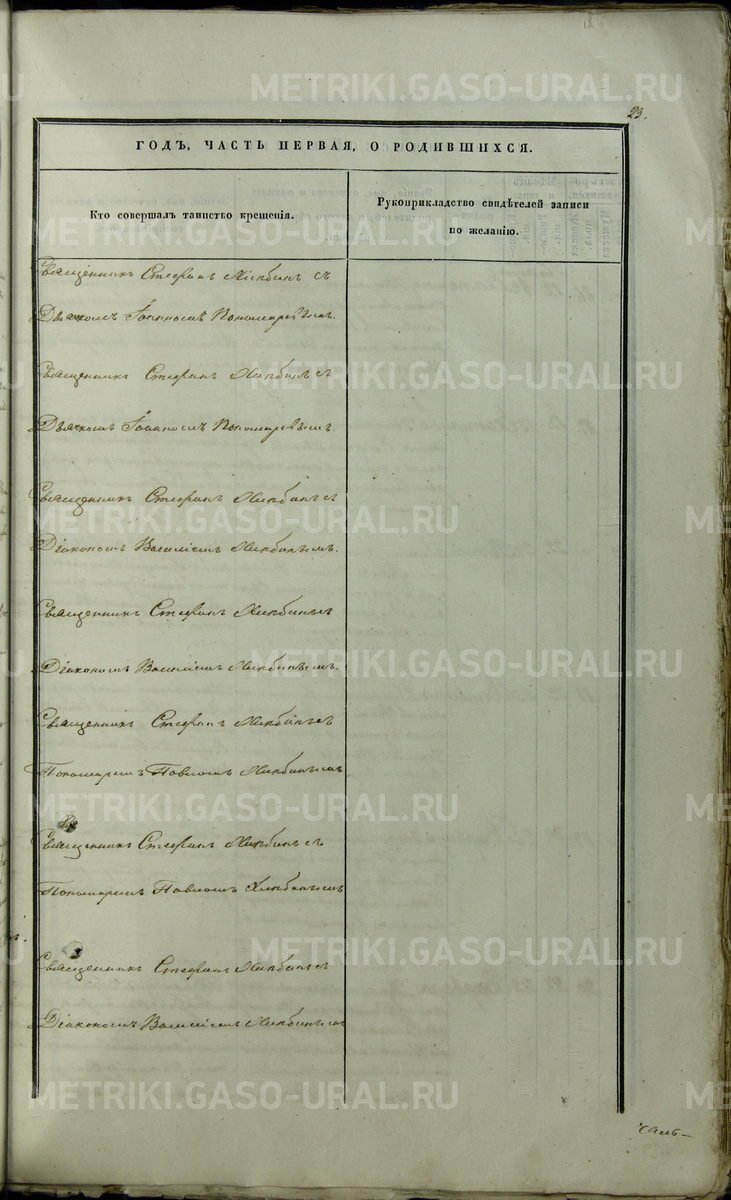 23.
ГОДЪ, ЧАСТЬ ПЕРВАЯ, О РОДИВШИХСЯ.
Кто совершалъ таинство крещенія.
Рукоприкладство свидѣтелей записи
по желанію.
Священникъ Стефанъ Хлѣбинъ съ
Дьячкомъ Іоанномъ Пономаревымъ.
Священникъ Стефанъ Хлѣбинъ съ
Дьячкомъ Іоанномъ Пономаревымъ
Священникъ Стефанъ Хлѣбинъ съ
Діакономъ Василіемъ Хлѣбинымъ.
Священникъ Стефанъ Хлѣбинъ съ
Діакономъ Василіемъ Хлѣбинымъ.
Священникъ Стефанъ Хлѣбинъ съ
Пономаремъ Павломъ Хлѣбинымъ
Священникъ Стефанъ Хлѣбинъ съ
Пономаремъ Павломъ Хлѣбинымъ
Священникъ Стефанъ Хлѣбинъ съ
Діакономъ Василіемъ Хлѣбинымъ
METRIKI.GASO-URAL.RU